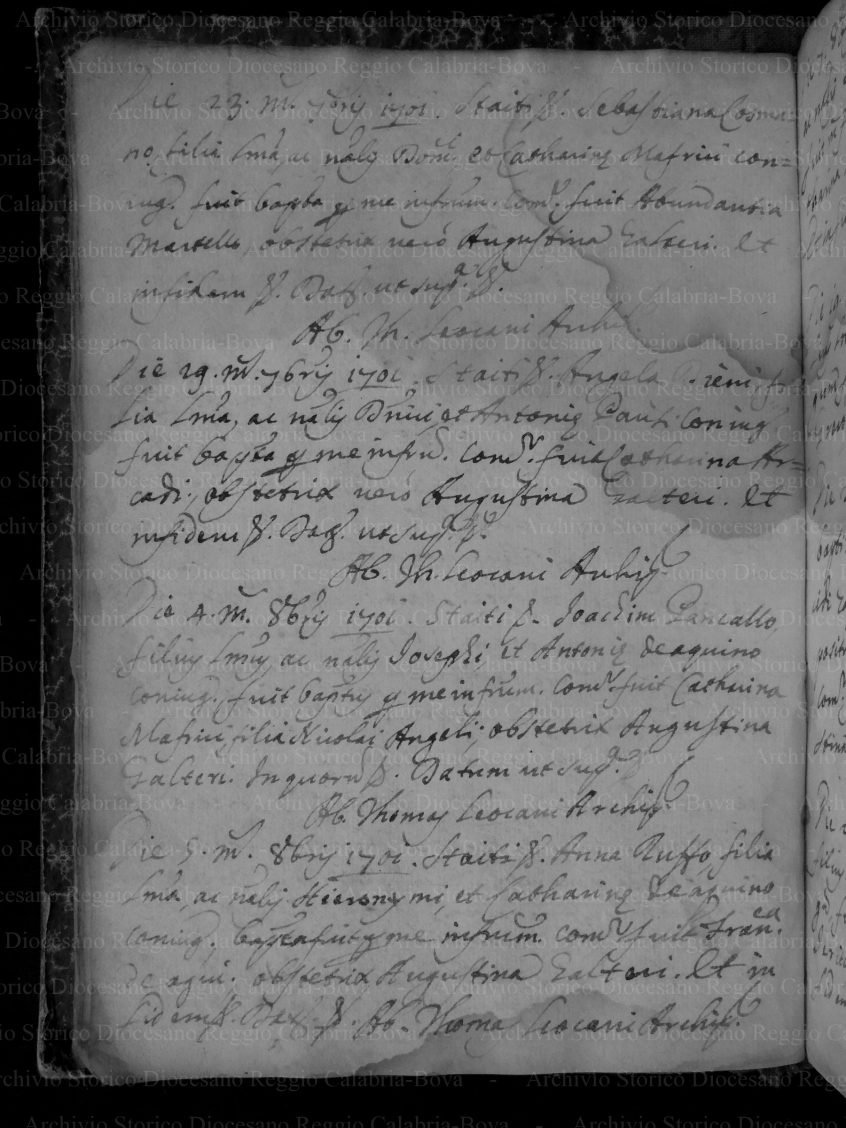 Die 23. m. 7bris 1701. Staiti &. Sebastiana Cosma=
no, filia lma, ac nalis Dom. et Catharinę Mafrici con=
iug. fuit bapta p me infrum. Com. fuit Abundantia
Martello, obstetrix vero Augustina Galteri. Et
in fidem &. Dat. ut sup.a &.
Ab. Th. Leocani Archip.
Die 29. m. 7bris 1701. Staiti &. Angela fi
lia lma, ac nalis Dnici et Antonię Pauli coniug
fuit bapta p me infru. Com. fuit Catharina Ar=
cadi, obstetrix vero Augustina Galteri. Et
in fidem &. Dat. ut sup. &.
Ab. Th. Leocani Archip.
Die 4. m. 8bris 1701. Staiti &. Joachim Pancallo,
filius lmus, ac nalis Josephi, et Antonię de aquino
coniug. fuit baptus p me infrum. Com. fuit Catharina
Mafrici, filia Nicolai Angeli; obstetrix Augustina
Galteri. In quoru &. Datum ut sup. &
Ab. Thomas Leocani Archip.
Die 5. m. 8bris 1701. Staiti &. Anna Ruffo filia
lma, ac nalis Hieronymi, et Catharinę de aquino
coniug. bapta fuit p me infrum. Com. fuit Fran.ca
de aqui. obstetrix Augustina Galteri. Et in
fidem &. Dat. &. Ab. Thoma Leocani Archip.